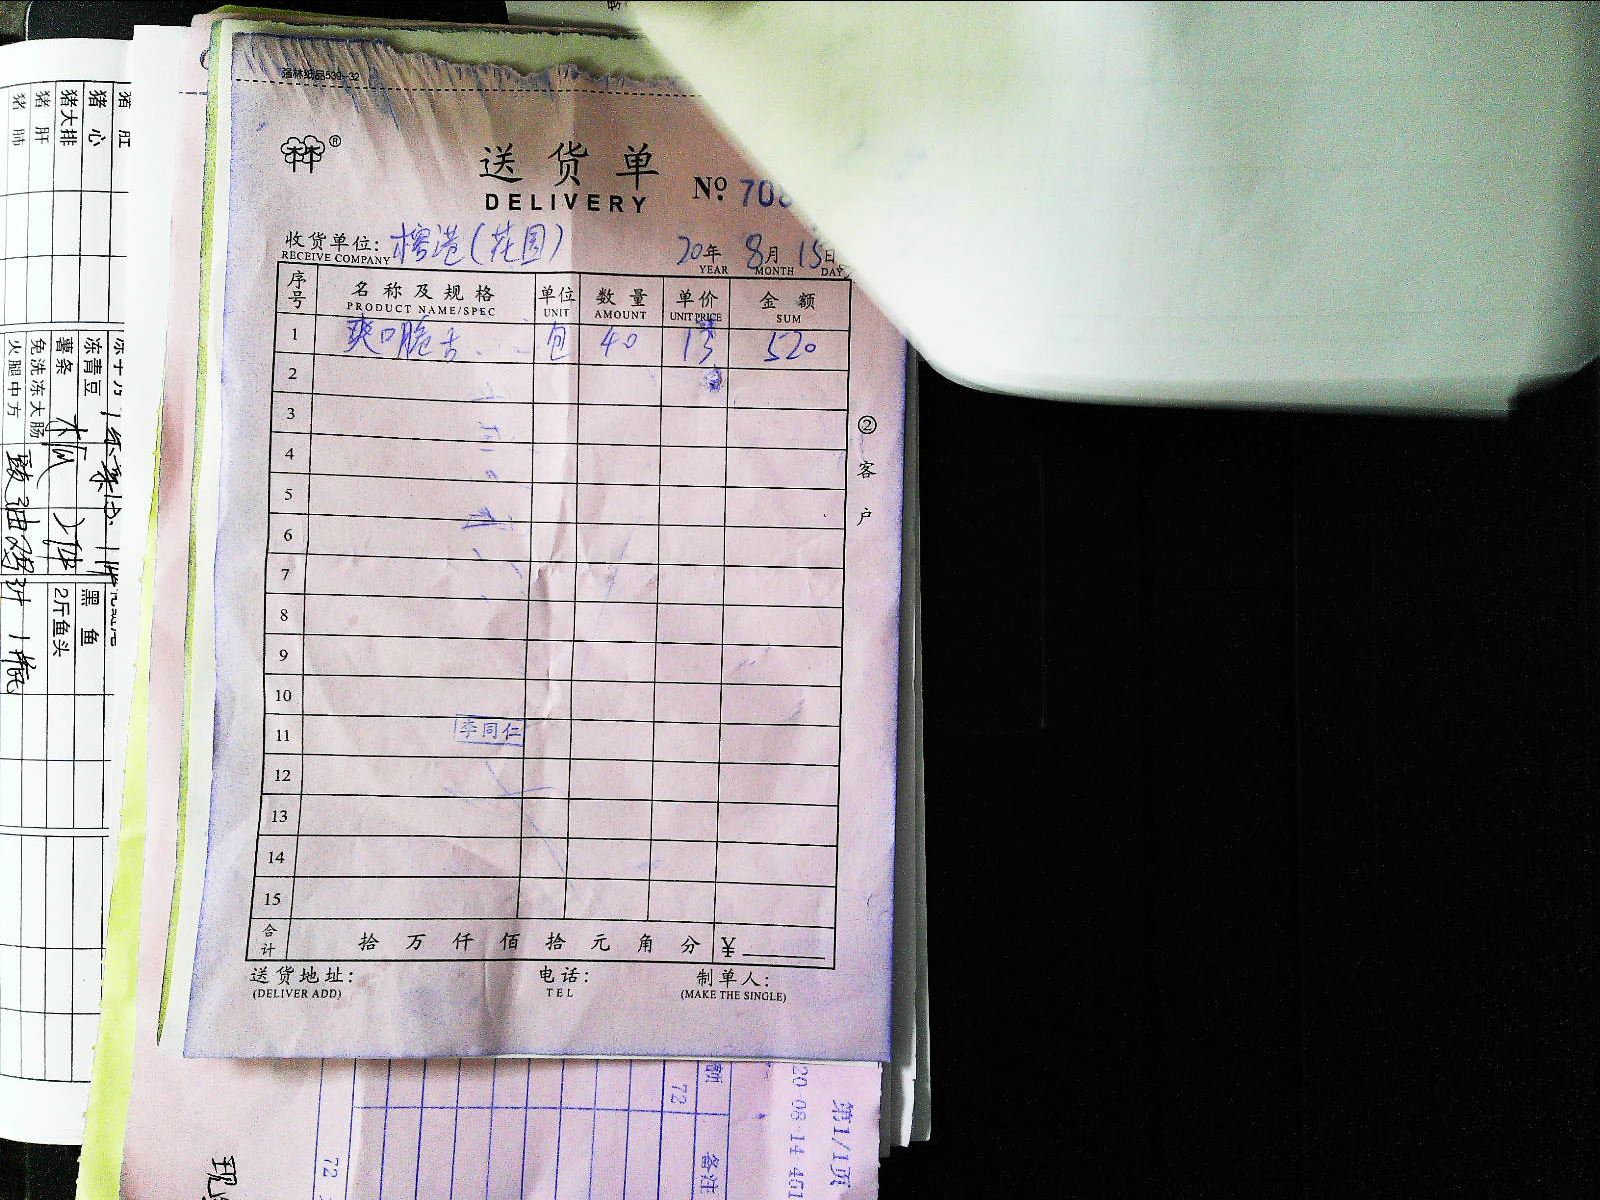 强林纸品539-32
送货单
DELIVERY
№ 708
收货单位: 榕港(花园) 20年 8月 15日
RECEIVE COMPANY YEAR MONTH DAY
序号 名称及规格 单位 数量 单价 金额
PRODUCT NAME/SPEC UNIT AMOUNT UNIT PRICE SUM
1 爽口脆舌 包 40 13 520
2
3
4
5
6
7
8
9
10
11 李同仁
12
13
14
15
合计 拾 万 仟 佰 拾 元 角 分 ¥
送货地址: 电话: 制单人:
(DELIVER ADD) TEL (MAKE THE SINGLE)
② 客户
猪肚
猪心
猪大排
猪肝
猪肺
冻青豆
薯条
免洗冻大肠
火腿中方
黑鱼
2斤鱼头
豉油鸡汁 1瓶
第1/1页
20-08-14 451
额
72
备注
72